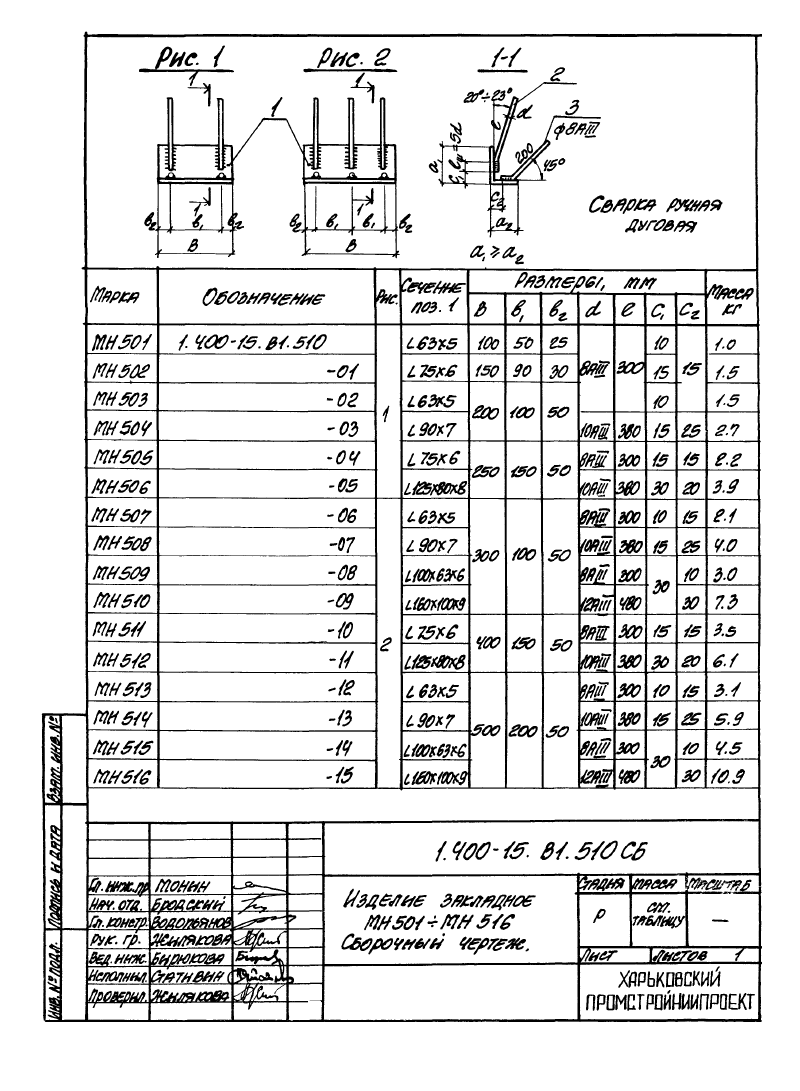 Рис. 1 Рис. 2 1-1
1 1 2
20°÷23° 3
1 ℓ d ф8АIII
a₁ c₁ ℓш=5d 200 45°
1 1 c₂
в₂ в₁ в₂ в₂ в₁ в₁ в₂ a₂
В В
a₁ ≥ a₂
Сварка ручная
дуговая
Марка Обозначение Рис. Сечение поз. 1 Размеры, мм Масса кг
В в₁ в₂ d ℓ С₁ С₂
МН 501 1.400-15.В1.510 1 L63х5 100 50 25 8АIII 300 10 15 1.0
МН 502 -01 L75х6 150 90 30 15 1.5
МН 503 -02 L63х5 200 100 50 10 1.5
МН 504 -03 L90х7 10АIII 380 15 25 2.7
МН 505 -04 L75х6 250 150 50 8АIII 300 15 15 2.2
МН 506 -05 L125х80х8 10АIII 380 30 20 3.9
МН 507 -06 2 L63х5 300 100 50 8АIII 300 10 15 2.1
МН 508 -07 L90х7 10АIII 380 15 25 4.0
МН 509 -08 L100х63х6 8АIII 300 30 10 3.0
МН 510 -09 L160х100х9 12АIII 480 30 7.3
МН 511 -10 L75х6 400 150 50 8АIII 300 15 15 3.5
МН 512 -11 L125х80х8 10АIII 380 30 20 6.1
МН 513 -12 L63х5 500 200 50 8АIII 300 10 15 3.1
МН 514 -13 L90х7 10АIII 380 15 25 5.9
МН 515 -14 L100х63х6 8АIII 300 30 10 4.5
МН 516 -15 L160х100х9 12АIII 480 30 10.9
Взам. инв. №
Подпись и дата
Инв. № подл.
1.400-15. В1.510 СБ
Гл. инж. пр Монин
Нач. отд. Бродский
Гл. констр. Водопьянов
Рук. гр. Жилякова
Вед. инж. Бирюкова
Исполнил. Стативин
Проверил. Жилякова
Изделие закладное
МН 501 ÷ МН 516
Сборочный чертеж.
Стадия Масса Масштаб
Р см. таблицу —
Лист Листов 1
Харьковский
ПРОМСТРОЙНИИПРОЕКТ